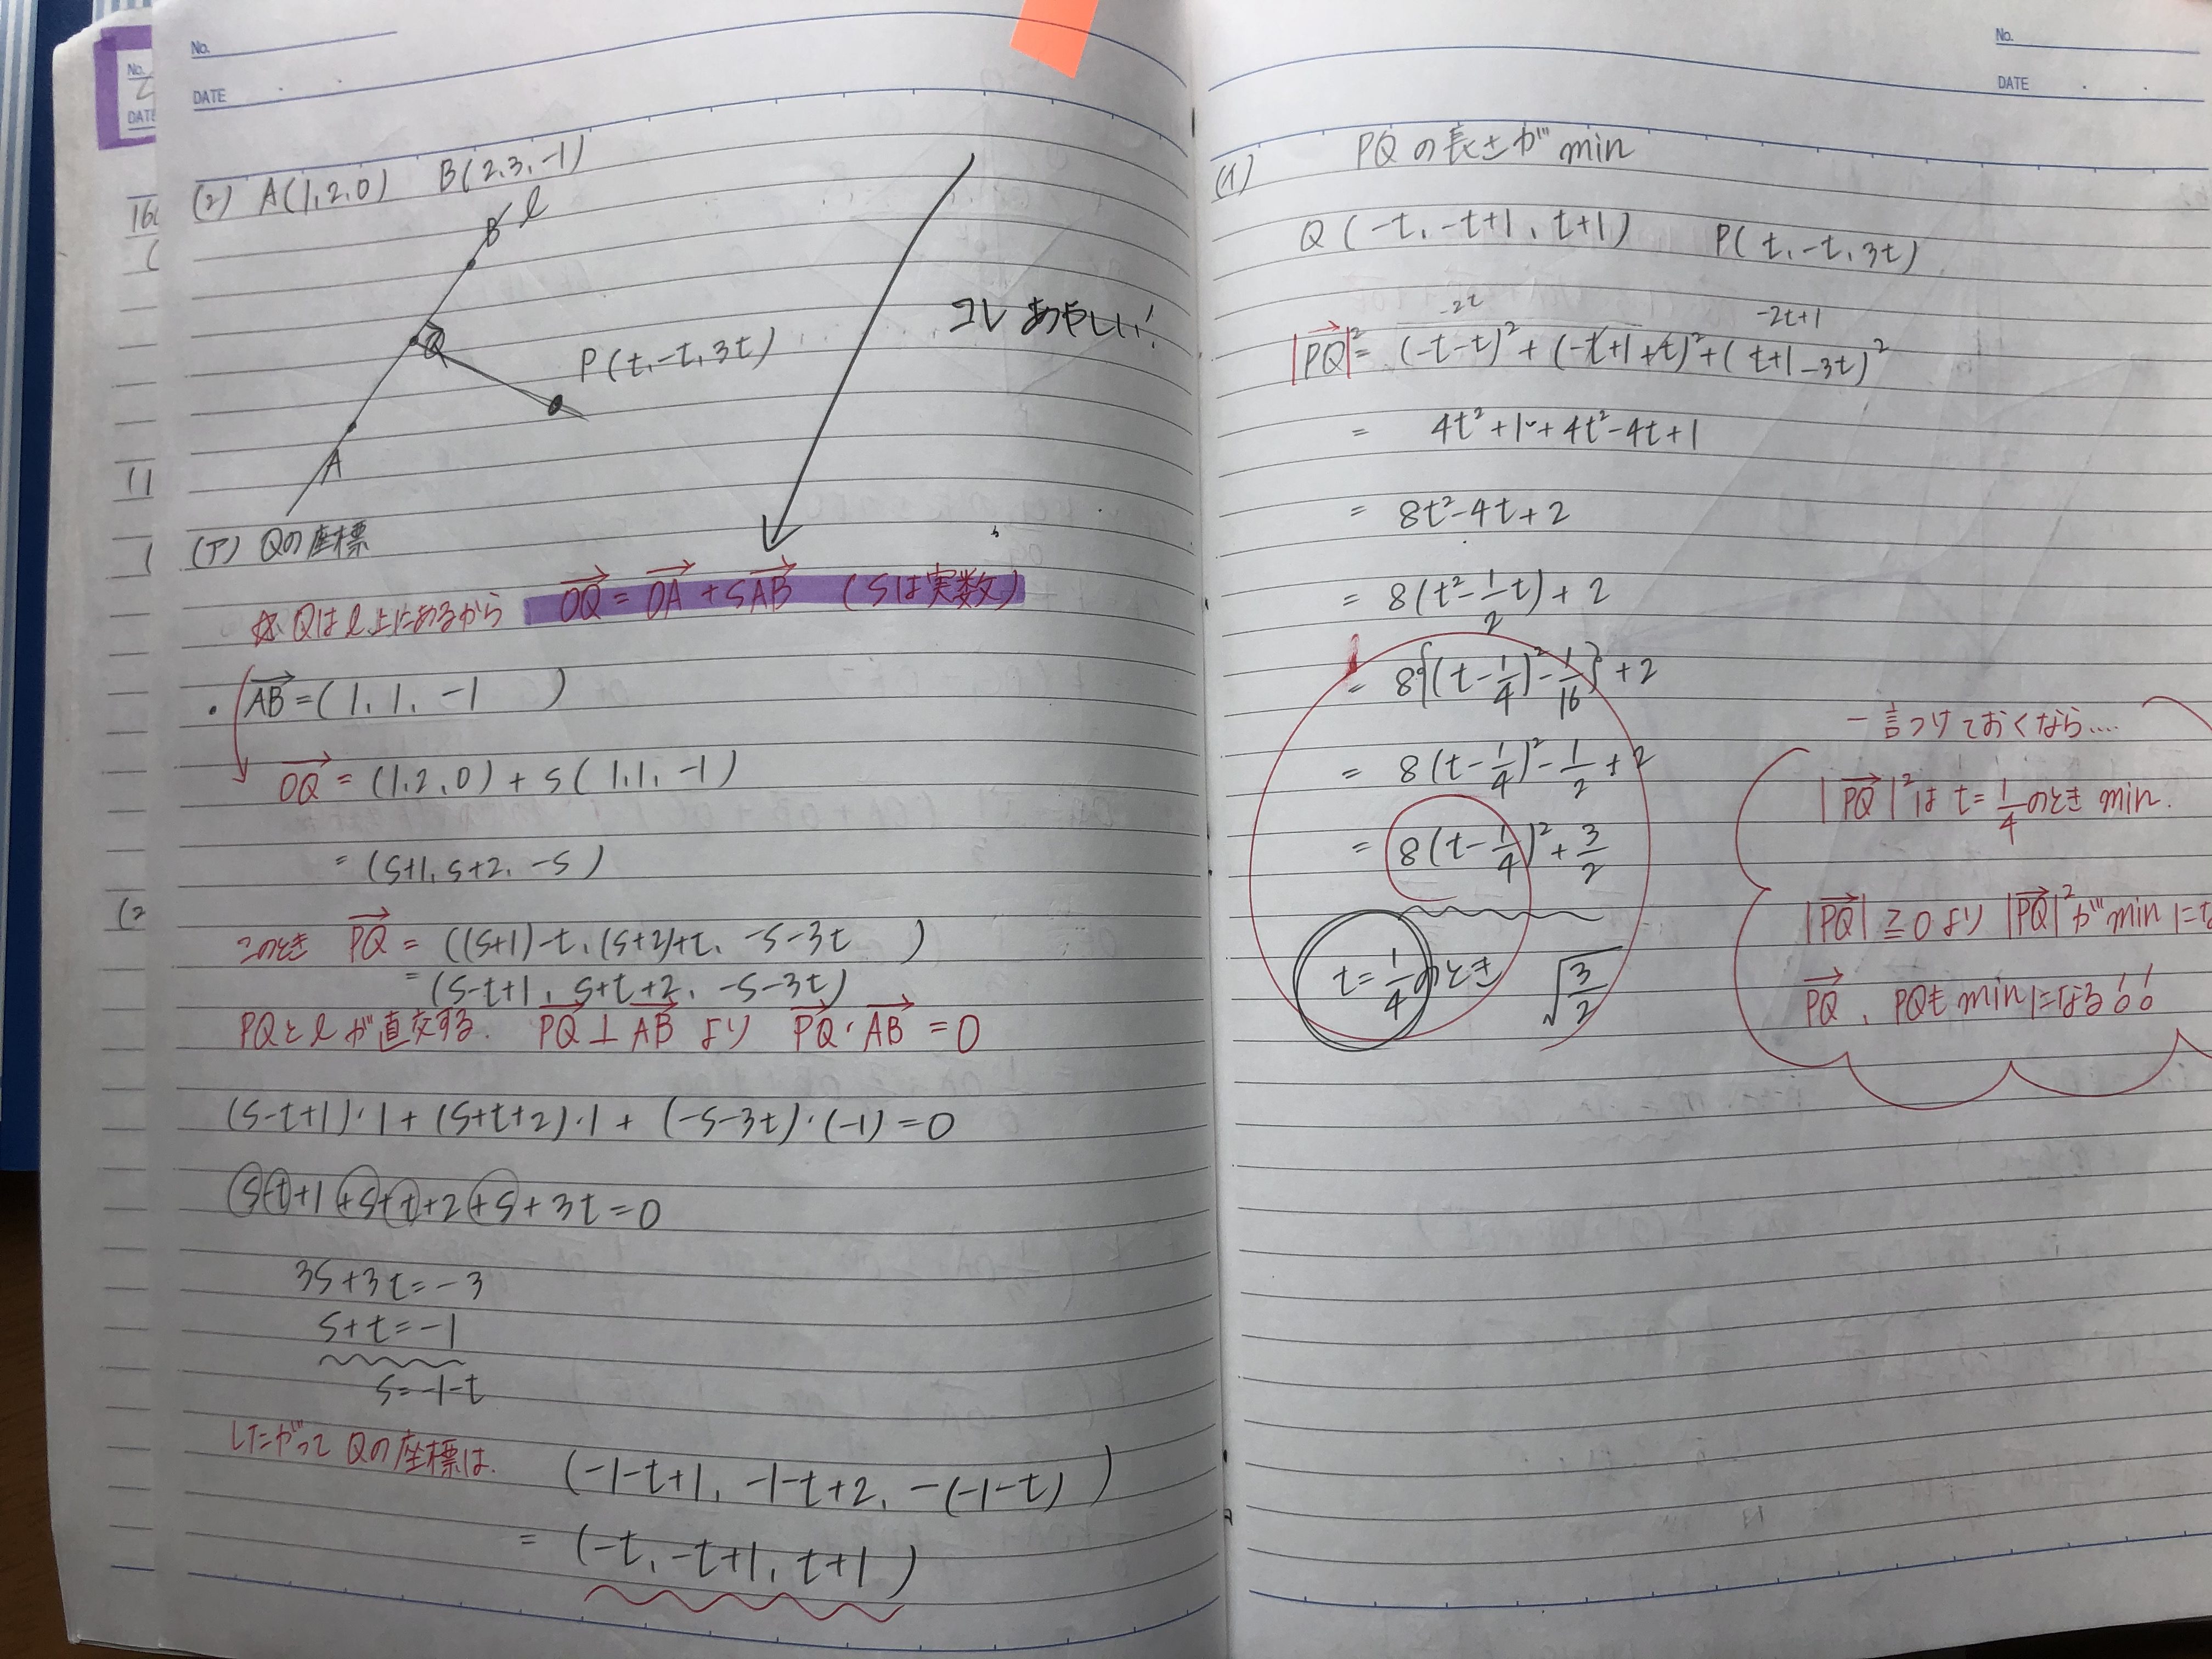 No.
DATE
No.
DATE
(2) A(1,2,0) B(2,3,-1)
B ℓ
Q
P(t,-t,3t)
A
コレ あやしい!
(ア) Qの座標
☆ Qはℓ上にあるから OQ→ = OA→ + sAB→ (sは実数)
・ AB→ = (1, 1, -1 )
OQ→ = (1,2,0) + s(1,1,-1)
= (s+1, s+2, -s)
このとき PQ→ = ((s+1)-t, (s+2)+t, -s-3t )
= (s-t+1, s+t+2, -s-3t)
PQとℓが直交する. PQ→ ⊥ AB→ より PQ→・AB→ = 0
(s-t+1)・1 + (s+t+2)・1 + (-s-3t)・(-1) = 0
s-t+1+s+t+2+s+3t=0
3s+3t=-3
s+t=-1
s=-1-t
したがって Qの座標は. (-1-t+1, -1-t+2, -(-1-t) )
= (-t, -t+1, t+1)
No.
DATE
(イ) PQの長さがmin
Q(-t, -t+1, t+1) P(t, -t, 3t)
-2t -2t+1
|PQ→|² = (-t-t)² + (-t+1+t)² + (t+1-3t)²
= 4t²+1+4t²-4t+1
= 8t²-4t+2
= 8(t²-1/2t)+2
= 8{(t-1/4)²-1/16}+2
= 8(t-1/4)²-1/2+2
= 8(t-1/4)²+3/2
t=1/4のとき √3/2
一言つけておくなら....
|PQ→|²は t=1/4のとき min.
|PQ→|≧0より |PQ→|²がminに
PQ→、PQもminになる!!
16
(
(1
(
(2